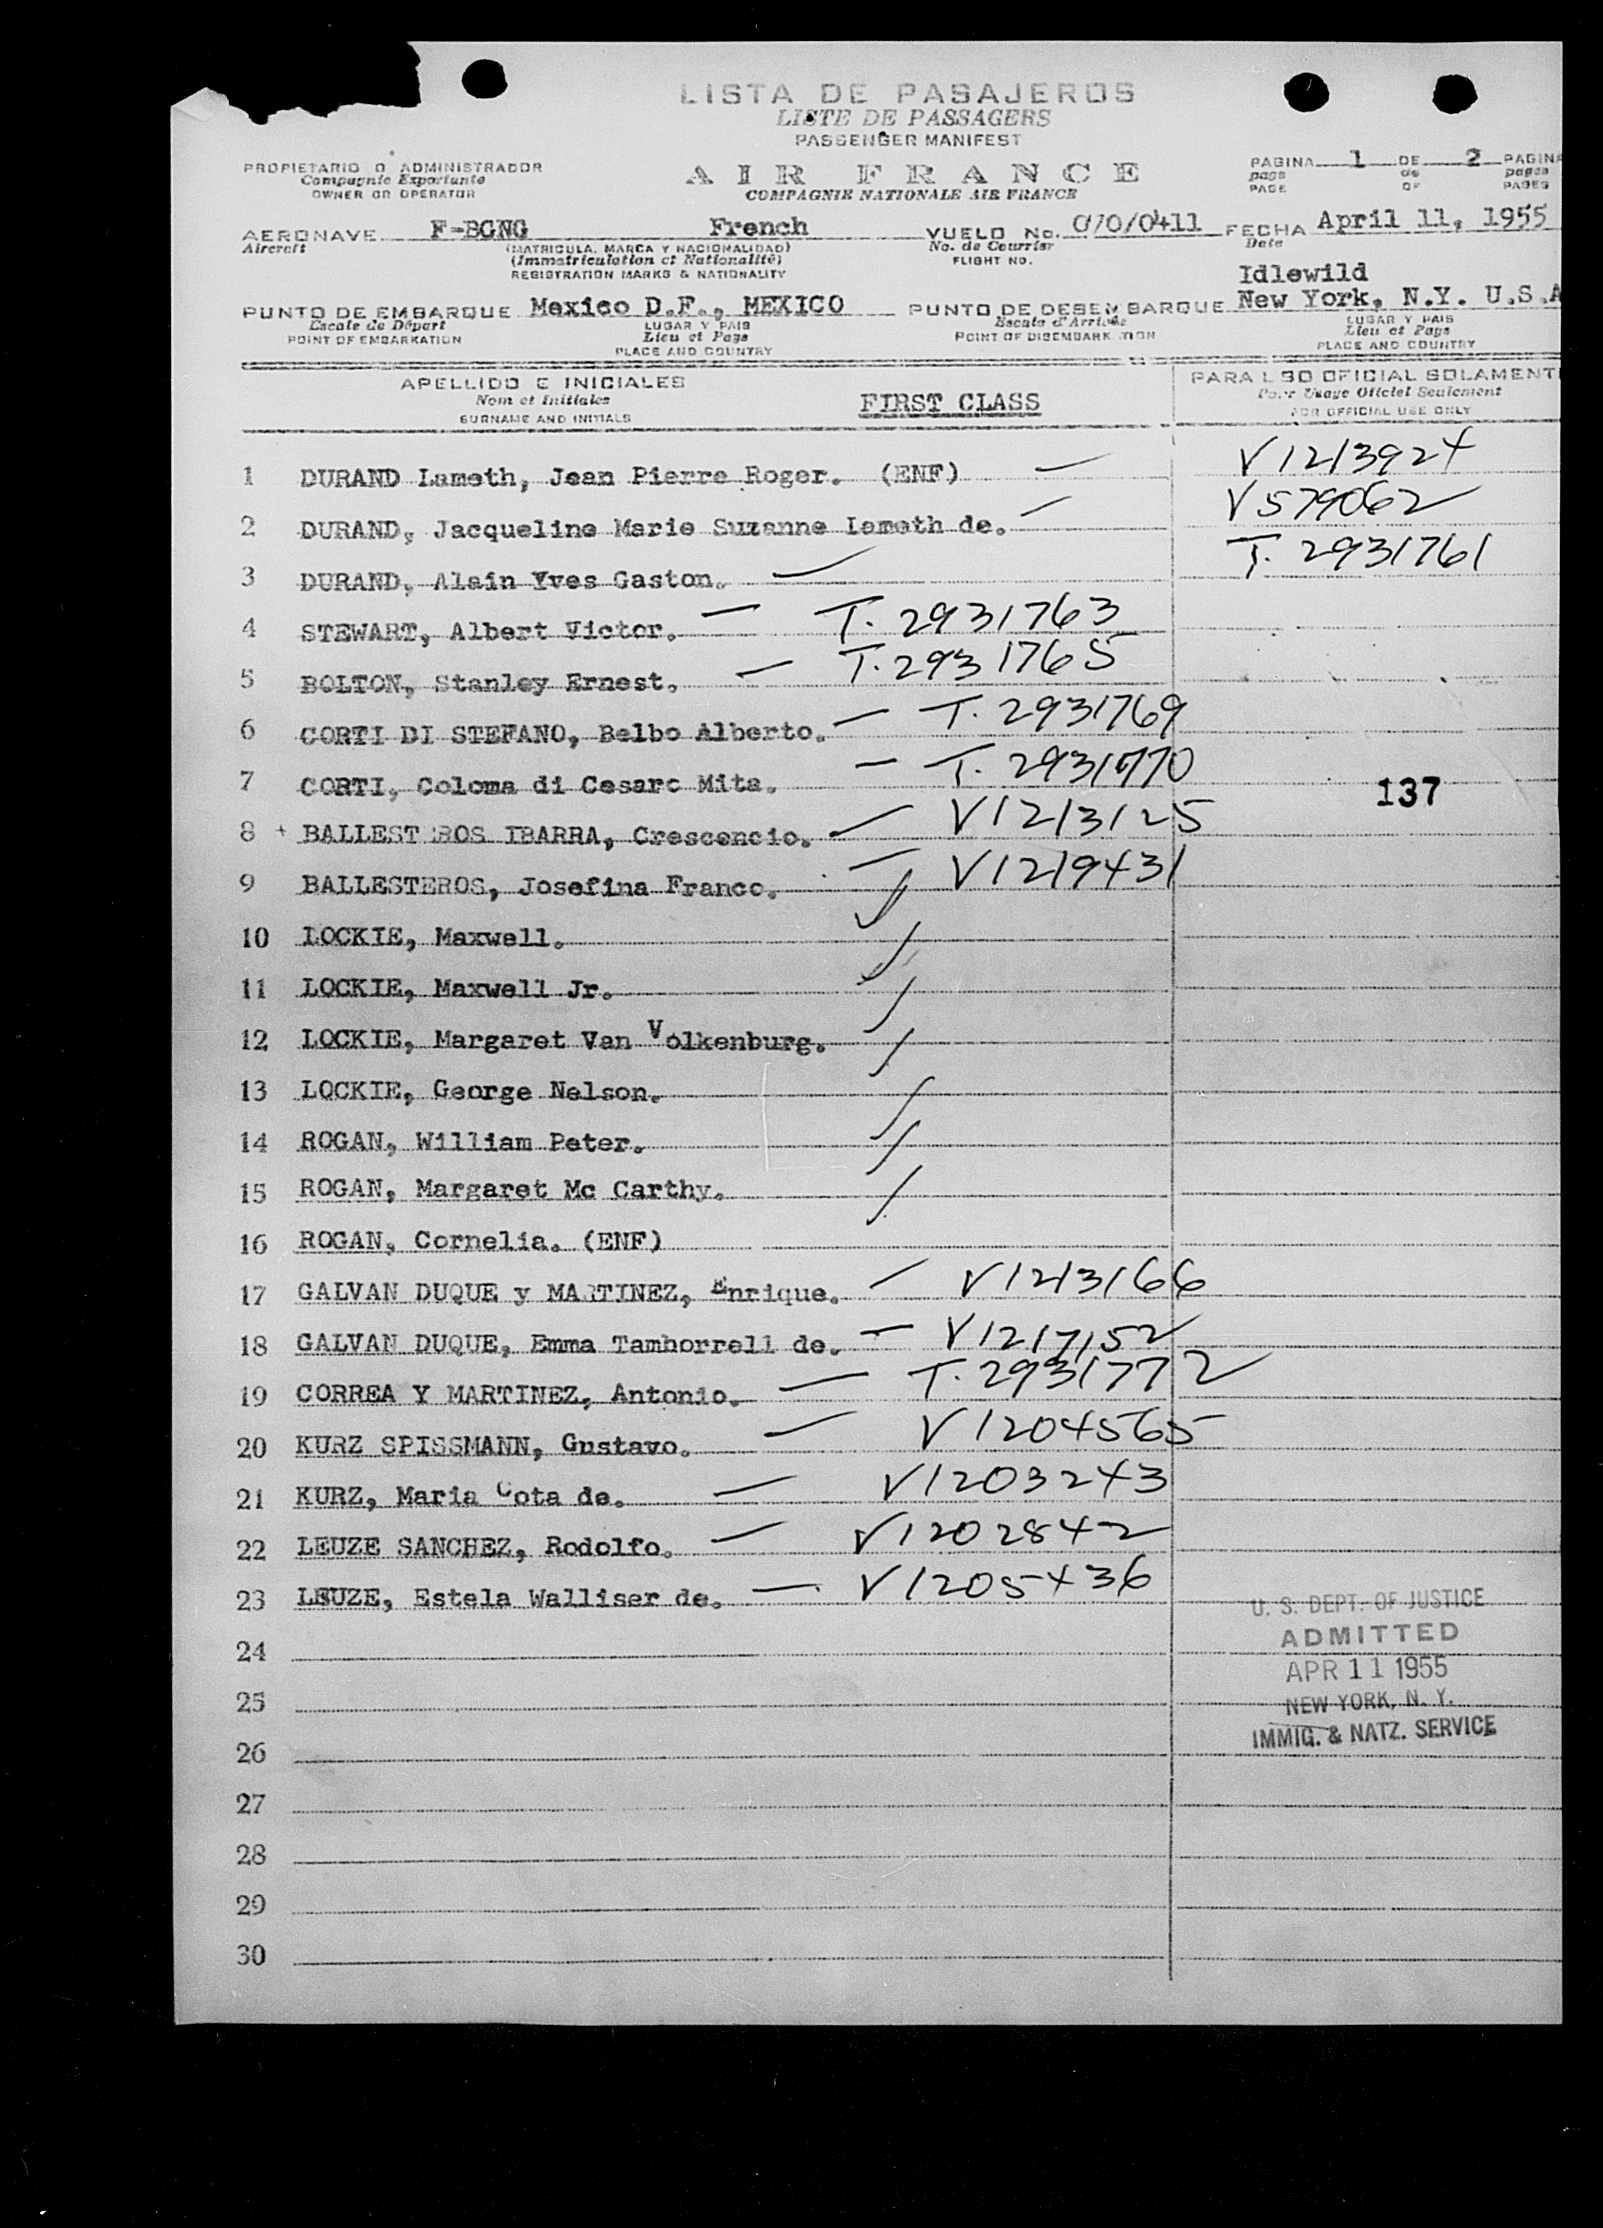 LISTA DE PASAJEROS
LISTE DE PASSAGERS
PASSENGER MANIFEST
PROPIETARIO O ADMINISTRADOR
Compagnie Exportante
OWNER OR OPERATOR
AIR FRANCE
COMPAGNIE NATIONALE AIR FRANCE
PAGINA 1 DE 2 PAGINA
page de pages
PAGE OF PAGES
AERONAVE F-BGNG French VUELO No. 070/0411 FECHA April 11, 1955
Aircraft (MATRICULA, MARCA Y NACIONALIDAD) No. de Courrier Date
(Immatriculation et Nationalité) FLIGHT NO.
REGISTRATION MARKS & NATIONALITY
Idlewild
PUNTO DE EMBARQUE Mexico D.F., MEXICO PUNTO DE DESEMBARQUE New York, N.Y. U.S.A
Escale de Départ LUGAR Y PAIS Escale d'Arrivée LUGAR Y PAIS
POINT OF EMBARKATION Lieu et Pays POINT OF DISEMBARK TION Lieu et Pays
PLACE AND COUNTRY PLACE AND COUNTRY
APELLIDO E INICIALES PARA USO OFICIAL SOLAMENTE
Nom et Initiales FIRST CLASS Pour Usage Officiel Seulement
SURNAME AND INITIALS FOR OFFICIAL USE ONLY
1 DURAND Lameth, Jean Pierre Roger. (ENF) V1213924
2 DURAND, Jacqueline Marie Suzanne Lameth de. V579062
3 DURAND, Alain Yves Gaston. T. 2931761
4 STEWART, Albert Victor. T. 2931763
5 BOLTON, Stanley Ernest. T. 2931765
6 CORTI DI STEFANO, Belbo Alberto. T. 2931769
7 CORTI, Coloma di Cesarc Mita. T. 2931770
137
8 + BALLESTEROS IBARRA, Crescencio. V1213125
9 BALLESTEROS, Josefina Franco. V1219431
10 LOCKIE, Maxwell.
11 LOCKIE, Maxwell Jr.
12 LOCKIE, Margaret Van Volkenburg.
13 LOCKIE, George Nelson.
14 ROGAN, William Peter.
15 ROGAN, Margaret Mc Carthy.
16 ROGAN, Cornelia. (ENF)
17 GALVAN DUQUE y MARTINEZ, Enrique. V1213166
18 GALVAN DUQUE, Emma Tamborrell de. V1217152
19 CORREA Y MARTINEZ, Antonio. T. 2931772
20 KURZ SPISSMANN, Gustavo. V1204565
21 KURZ, Maria Cota de. V1203243
22 LEUZE SANCHEZ, Rodolfo. V1202842
23 LEUZE, Estela Walliser de. V1205436
24
25
26
27
28
29
30
U. S. DEPT. OF JUSTICE
ADMITTED
APR 11 1955
NEW YORK, N. Y.
IMMIG. & NATZ. SERVICE